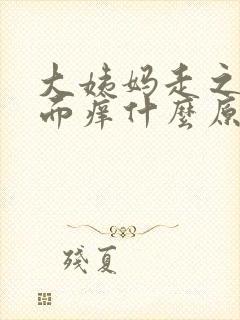 大姨妈走之
而痒什麼原
残夏